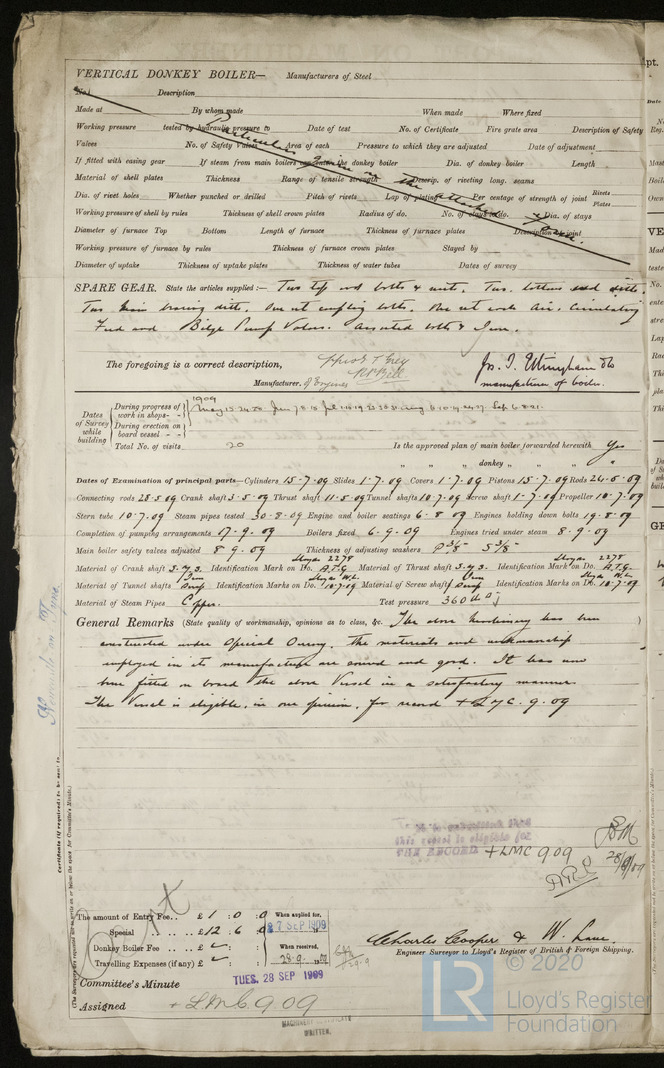 VERTICAL DONKEY BOILER— Manufacturers of Steel
No. Description
Made at By whom made When made Where fixed
Working pressure tested by hydraulic pressure to Date of test No. of Certificate Fire grate area Description of Safety
Valves No. of Safety Valves Area of each Pressure to which they are adjusted Date of adjustment
If fitted with easing gear If steam from main boilers can enter the donkey boiler Dia. of donkey boiler Length
Material of shell plates Thickness Range of tensile strength Descrip. of riveting long. seams
Dia. of rivet holes Whether punched or drilled Pitch of rivets Lap of plating Per centage of strength of joint Rivets Plates
Working pressure of shell by rules Thickness of shell crown plates Radius of do. No. of stays to do. Dia. of stays
Diameter of furnace Top Bottom Length of furnace Thickness of furnace plates Description of joint
Working pressure of furnace by rules Thickness of furnace crown plates Stayed by
Diameter of uptake Thickness of uptake plates Thickness of water tubes Dates of survey
Particulars given in the attached Form.
SPARE GEAR. State the articles supplied:— Two top end bolts & nuts. Two bottom end ditto.
Two main bearing ditto. One set coupling bolts. One set each Air, Circulating
Feed and Bilge Pump Valves. Assorted bolts & Iron.
The foregoing is a correct description,
Manufacturer. of Engines
manufacturer of boiler.
Dates of Survey while building
During progress of work in shops- -
1909
During erection on board vessel - -
Total No. of visits. 20
Is the approved plan of main boiler forwarded herewith Yes
" " " donkey " " "
Dates of Examination of principal parts—Cylinders 15.7.09 Slides 1.7.09 Covers 1.7.09 Pistons 15.7.09 Rods 24.6.09
Connecting rods 28.5.09 Crank shaft 3.5.09 Thrust shaft 11.5.09 Tunnel shafts 10.7.09 Screw shaft 1.7.09 Propeller 10.7.09
Stern tube 10.7.09 Steam pipes tested 30.8.09 Engine and boiler seatings 6.8.09 Engines holding down bolts 19.8.09
Completion of pumping arrangements 17.9.09 Boilers fixed 6.9.09 Engines tried under steam 8.9.09
Main boiler safety valves adjusted 8.9.09 Thickness of adjusting washers P 3/8 S 3/8
Material of Crank shaft Identification Mark on Do. Lloyds 2278 A.T.G. Material of Thrust shaft Identification Mark on Do. Lloyds 2278 A.T.G.
Material of Tunnel shafts Identification Marks on Do. 10.7.09 Material of Screw shafts Identification Marks on Do. 10.7.09
Material of Steam Pipes Copper. Test pressure 360 lbs
General Remarks (State quality of workmanship, opinions as to class, &c. The above Machinery has been
constructed under Special Survey. The materials and workmanship
employed in its manufacture are sound and good. It has now
been fitted on board the above Vessel in a satisfactory manner.
The Vessel is eligible, in our opinion, for record + LMC. 9.09
Newcastle on Tyne
this vessel is eligible for
THE RECORD + LMC 9.09
28/9/09
The amount of Entry Fee . . £ 1 : 0 : 0 When applied for,
Special . . £ 12 : 6 : 27 SEP 1909
Donkey Boiler Fee . . £ When received,
Travelling Expenses (if any) £ 28.9.
Charles Cooper & W. Lane.
Engineer Surveyor to Lloyd's Register of British & Foreign Shipping.
TUES. 28 SEP 1909
Committee's Minute
Assigned + LMC 9.09
MACHINERY CERTIFICATE
WRITTEN.
© 2020
Lloyd's Register
Foundation
LR